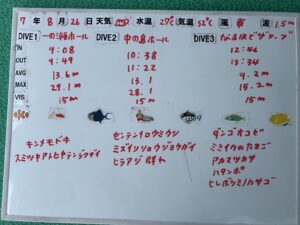 7年 8月 26日 天気 水温 27℃ 気温 32℃ 風 東 波 1.5m
DIVE1 一の瀬ホール DIVE2 中の島ホール DIVE3 なるほどザ・ワープ
IN 9:08 10:38 12:46
OUT 9:49 11:22 13:34
AVG 13.6m 13.1 9.2m
MAX 29.1m 28.1 15.2m
VIS 15m 15m 15m
キンメモドキ センテンイロウミウシ ダンゴオコゼ
スミツキアトヒキテンジクダイ ミズイリショウジョウガイ ミミイカのたまご
ヒラアジ 群れ アカマツカサ
ハタンポ
ヒレボシミノカサゴ